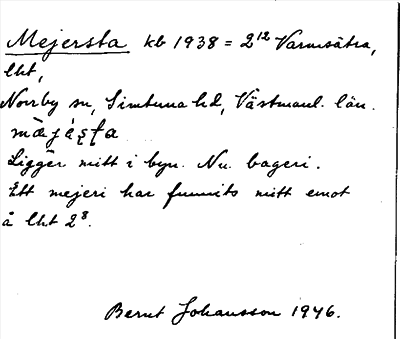 Mejersta kb 1938 = 2¹² Varmsätra,
lht,
Norrby sn, Simtuna hd, Västmanl. län.
Ligger mitt i byn. Nu bageri.
Ett mejeri har funnits mitt emot
å lht 2⁸.
Bernt Johansson 1946.